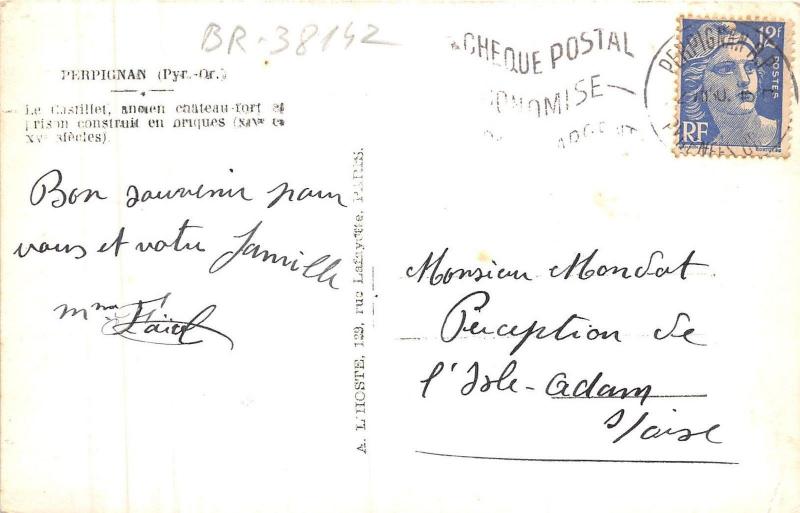 BR-38142
PERPIGNAN (Pyr.-Or.)
Le Castillet, ancien château-fort et
prison construit en briques (XIVe et
XVe siècles).
Bon souvenir pour
vous et votre famille
Mme
A. L'HOSTE, 129, rue Lafayette, PARIS.
CHEQUE POSTAL
ONOMISE
ARGENT
PERPIGNAN
12F
POSTES
RF
Monsieur Mondot
Perception de
l'Isle-Adam
s/oise